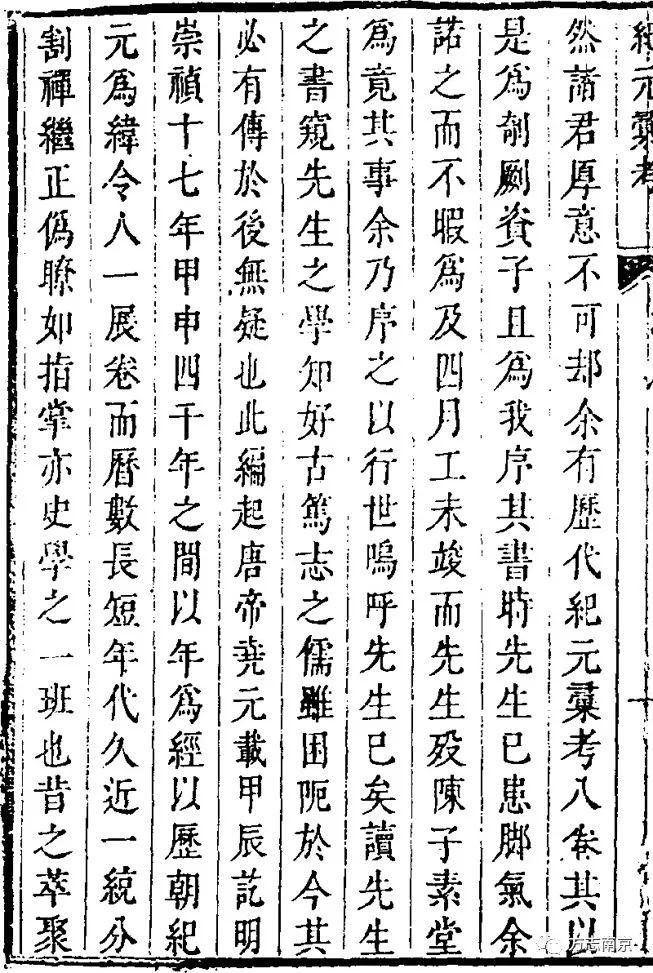 紀元彙考
然諸君厚意不可却余有歷代紀元彙考八卷其以
是爲剞劂資子且爲我序其書時先生已患脚氣余
諾之而不暇爲及四月工未竣而先生歿陳子素堂
爲竟其事余乃序之以行世嗚呼先生已矣讀先生
之書窺先生之學知好古篤志之儒雖困阨於今其
必有傳於後無疑也此編起唐帝堯元載甲辰訖明
崇禎十七年甲申四千年之間以年爲經以歷朝紀
元爲緯令人一展卷而曆數長短年代久近一統分
割禪繼正僞瞭如指掌亦史學之一班也昔之萃聚
方志南京